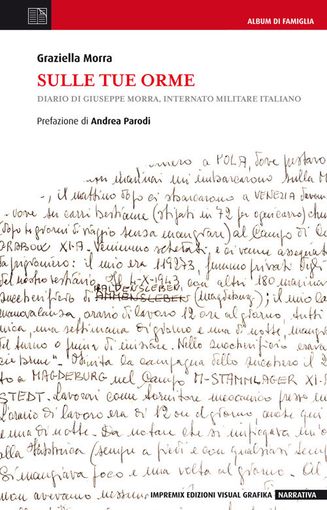 ALBUM DI FAMIGLIA
Graziella Morra
SULLE TUE ORME
DIARIO DI GIUSEPPE MORRA, INTERNATO MILITARE ITALIANO
Prefazione di Andrea Parodi
a POLA, dove
con marinai mi imbarcarono sulla M
, il mattino dopo ci sbarcarono a VENEZIA
dove su carri bestiame (stipati in 72 per ogni carro) che
(dopo giorni di viaggio senza mangiare) al Campo di
XI-A. Venimmo schedati, e ci venne
prigioniero: il mio era 119273, fummo privati degli
del nostro vestiario. Il 4-X-1943 con altri 180 marinai
zuccherificio di HALDENSLEBEN (Magdeburg); il mio la
manovalanza, orario di lavoro 12 ore al giorno, tutti
una settimana di giorno e una di notte,
del turno o prima di iniziare. Nello zuccherificio eravamo
Finita la campagna dello zucchero il 2
a MAGDEBURG nel Campo M-STAMMLAGER XI-
STEDT. Lavorai come tornitore meccanico presso
L'orario di lavoro era di 12 ore al giorno, anche qui
e una di notte. Da notare che si impiegava un'o
alla fabbrica (sempre a piedi e con qualsiasi temp
Si mangiava poco e una volta al giorno.
non avevamo
IMPREMIX EDIZIONI VISUAL GRAFIKA NARRATIVA